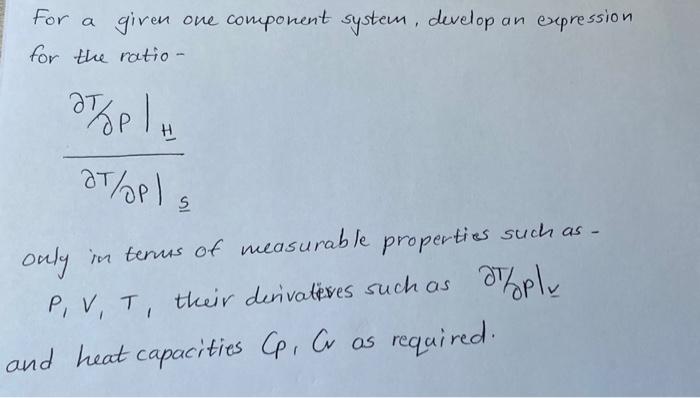 For a given one component system, develop an expression
for the ratio -
∂T/∂P|H
∂T/∂P|S
only in terms of measurable properties such as -
P, V, T, their derivatives such as ∂T/∂P|V
and heat capacities Cp, Cv as required.